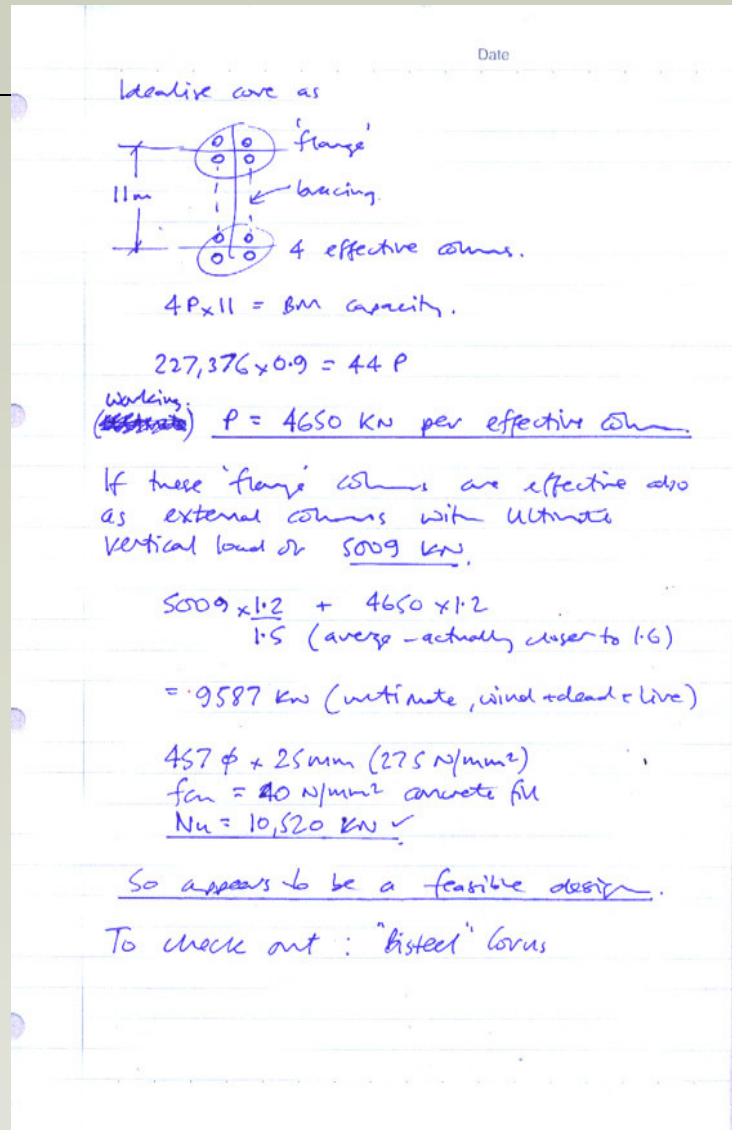 Date
Idealise core as
'flange'
11m
bracing.
4 effective columns.
4P x 11 = BM capacity.
227,376 x 0.9 = 44 P
working.
( ) P = 4650 KN per effective column
If these 'flange' columns are effective also
as external columns with Ultimate
vertical load of 5009 KN.
5009 x 1.2 + 4650 x 1.2
1.5 (average - actually closer to 1.6)
= 9587 KN (ultimate, wind + dead + live)
457 φ x 25mm (275 N/mm²)
fcu = 40 N/mm² concrete fill
Nu = 10,520 KN ✓
So appears to be a feasible design.
To check out : "Bisteel" Corus